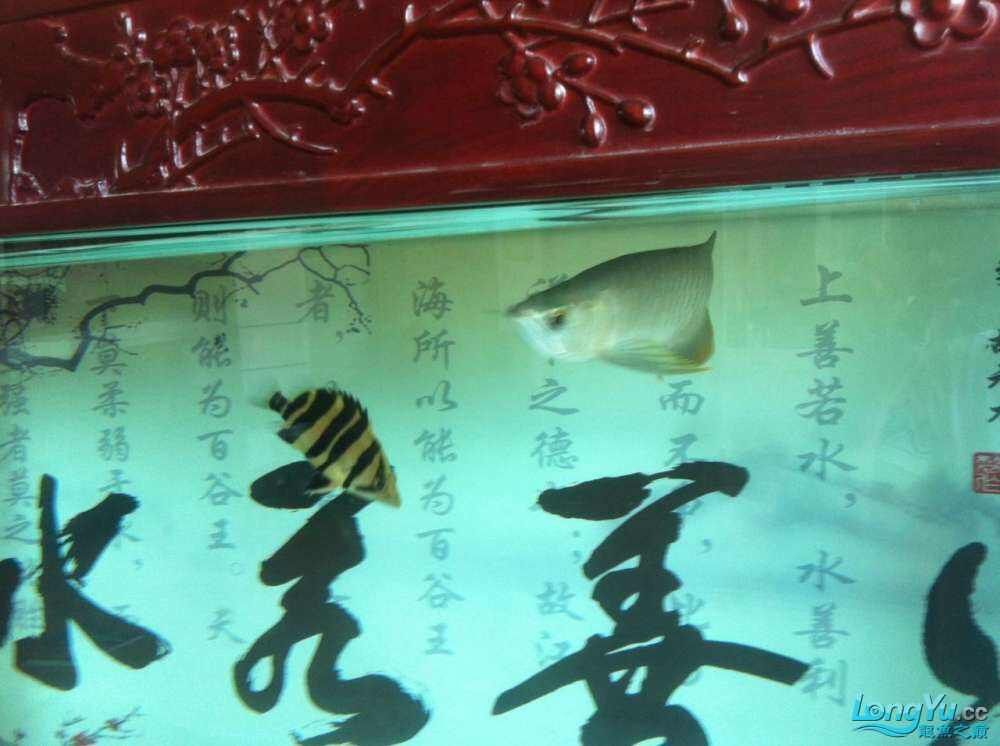 上善若水，水善利
而不
之德也；故江
海所以能为百谷王
者，
则能为百谷王。天
莫柔弱于水，
强者莫之胜
善若水
LongYu.cc
龍魚之巅